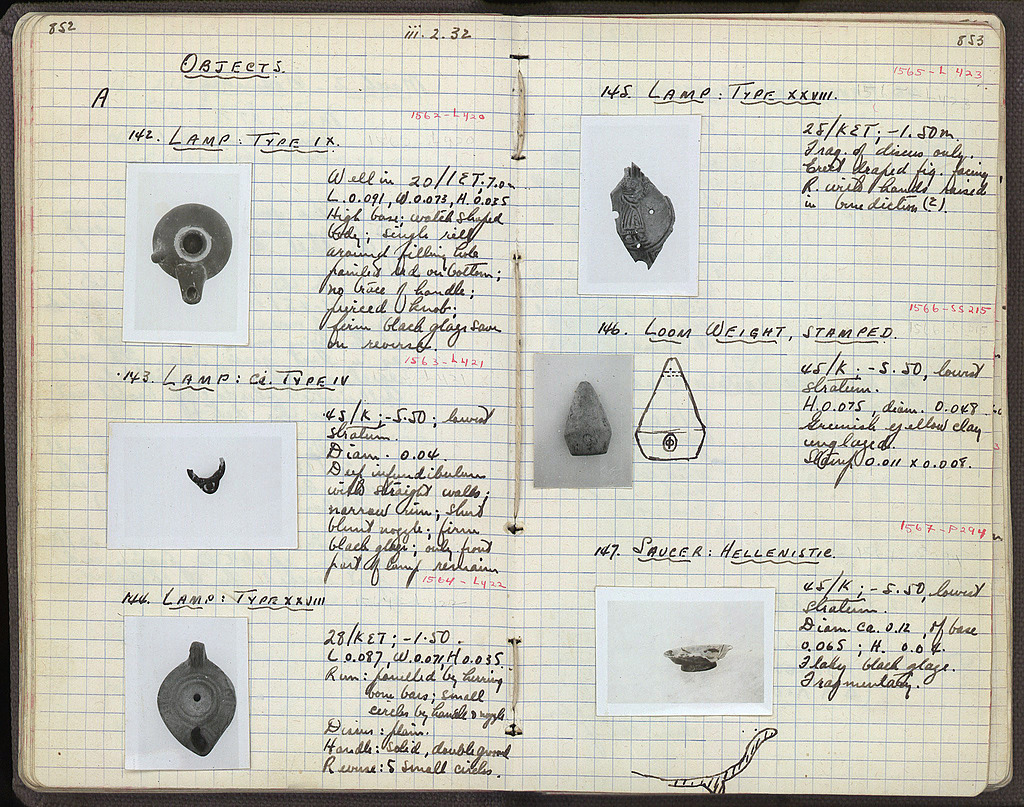 852
iii.2.32
OBJECTS.
A
1562-L420
142. LAMP: TYPE IX.
Well in 20/ΙΣΤ; 7.0m
L. 0.091, W. 0.073, H. 0.035
High base; watch shaped
body; single rill
around filling hole
painted red on bottom;
no trace of handle;
pierced knob;
firm black glaze save
on reverse.
1563-L421
143. LAMP: Ca. TYPE IV
45/K; -5.50; lowest
stratum.
Diam. 0.04.
Deep infundibulum
with straight walls;
narrow rim; short
blunt nozzle; firm
black glaze; only front
part of lamp remains
1564-L422
144. LAMP: TYPE XXVIII
28/ΚΣΤ; -1.50.
L 0.087, W. 0.071, H 0.035
Rim: panelled by herring
bone bars; small
circles by handle & nozzle
Discus: plain.
Handle: solid, double groove
Reverse: 5 small circles.
853
1565-L 423
145. LAMP: TYPE XXVIII.
28/ΚΣΤ; -1.50m.
Frag. of discus only.
Erect draped fig. facing
R. with hands raised
in benediction (?).
1566-SS215
146. LOOM WEIGHT, STAMPED.
45/K; -5.50, lowest
stratum.
H. 0.075, diam. 0.048
Greenish yellow clay
unglazed
Stamp 0.011 x 0.008.
1567-P294
147. SAUCER: HELLENISTIC.
45/K; -5.50, lowest
stratum.
Diam. ca. 0.12, of base
0.065; H. 0.04.
Flaky black glaze.
Fragmentary.